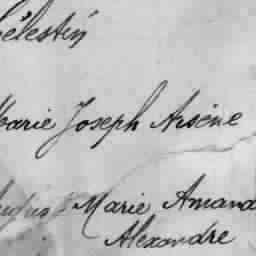 Célestin
Marie Joseph Arsène
Marie Amand
Alexandre